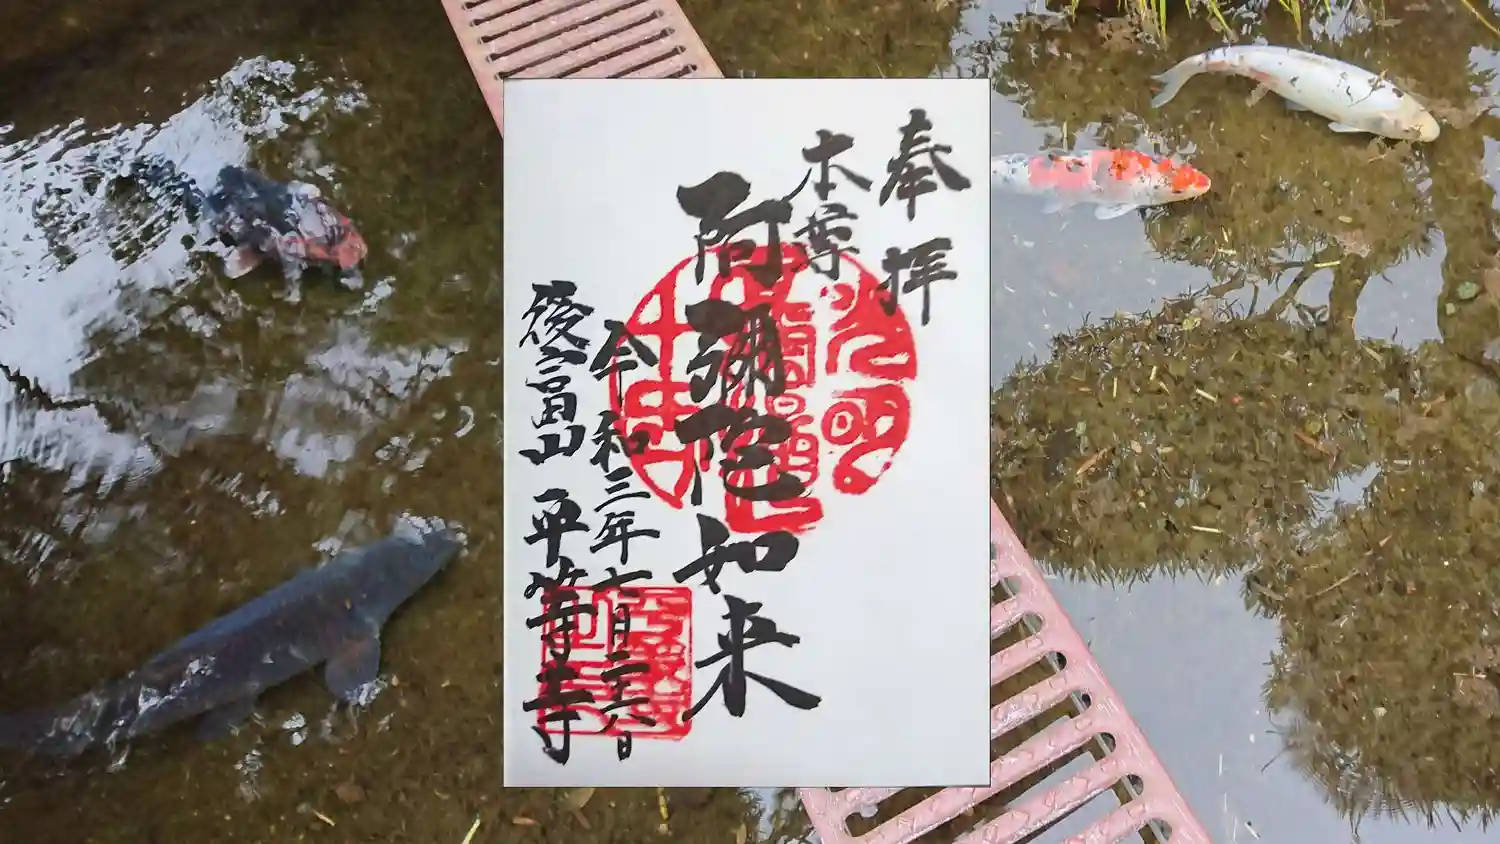 奉拝
本尊
阿彌陀如来
令和三年七月二十六日
後富山 平等寺